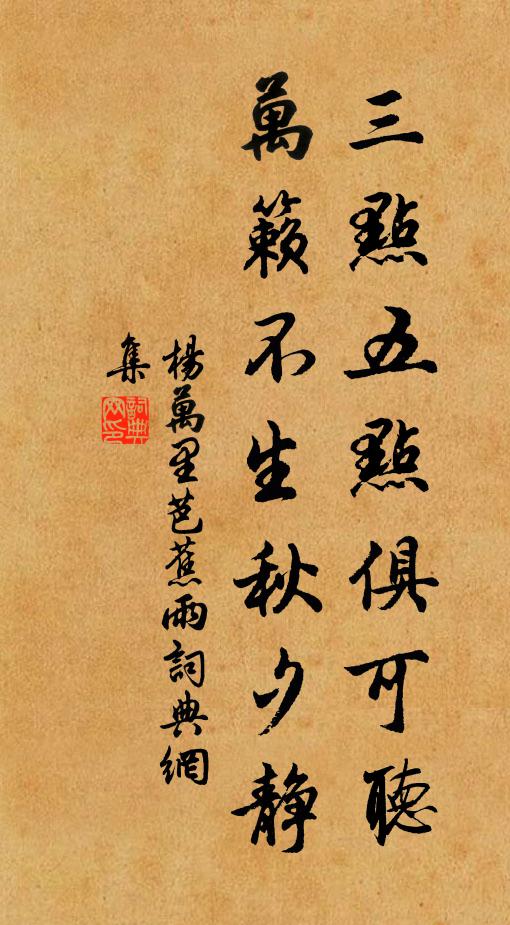 三點五點俱可聽
萬籟不生秋夕靜
楊萬里芭蕉雨詞典網
集
詞典
网印